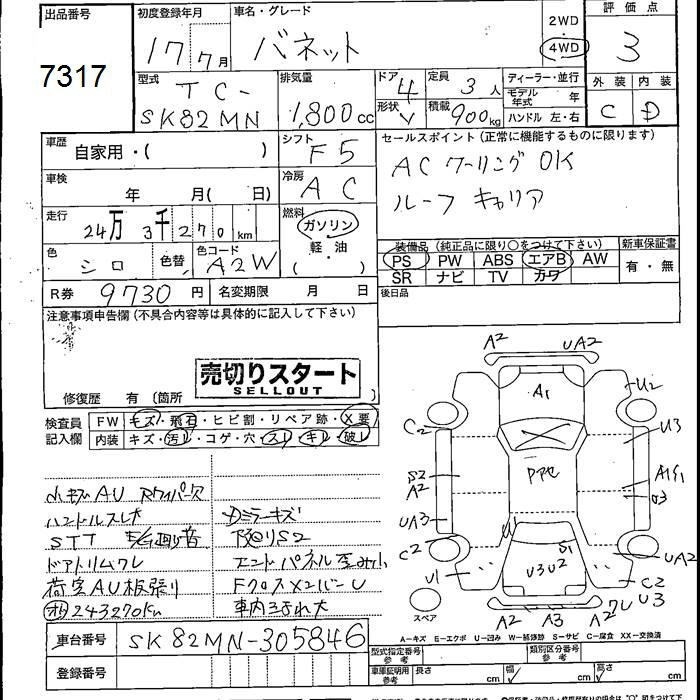 出品番号
7317
初度登録年月
17 7月
車名・グレード
バネット
2WD
・
4WD
評価点
3
外装 内装
C D
型式
TC-
SK82MN
排気量
1,800cc
ドア 4
形状 V
定員 3人
積載 900kg
ディーラー・並行
モデル年式 年
ハンドル 左・右
車歴
自家用・( )
シフト
F5
車検
年 月( 日)
冷房
AC
走行
24万3千270km
燃料
ガソリン
軽・油
( )
色
シロ
色替
色コード
A2W
R券 9730円
名変期限 月 日
セールスポイント(正常に機能するものに限ります)
AC クーリング OK
ルーフ キャリア
装備品(純正品に限り○をつけて下さい)
PS PW ABS エアB AW
SR ナビ TV カワ
新車保証書
有・無
後日品
注意事項申告欄(不具合内容等は具体的に記入して下さい)
売切りスタート
SELLOUT
修復歴 有(箇所 )
検査員
記入欄
FW キズ・飛石・ヒビ割・リペア跡・X要
内装 キズ・汚レ・コゲ・穴・スレ・キレ・破レ
小キズAU
ハンドルスレ大
Dミラーキズ
STT
下廻りS2
ドアトリムワレ
エンドパネル歪み小
荷室AU板張り
FクロスメンバーU
243270km
車内ヨゴレ大
A2 UA2
A1
U2
C2
U3
S2
A2
Pアセ
A1S1
UA3
C2
U1
U1
S1
U3U2
UA2
C2
U3
A2 A3 A2
スペア
A-キズ E-エクボ U-凹み W-補修跡 S-サビ C-腐食 XX-交換済
車台番号 SK82MN-305846
登録番号
型式指定番号
参考
類別区分番号
参考
車庫証明用
参考
長さ cm 幅 cm 高さ cm